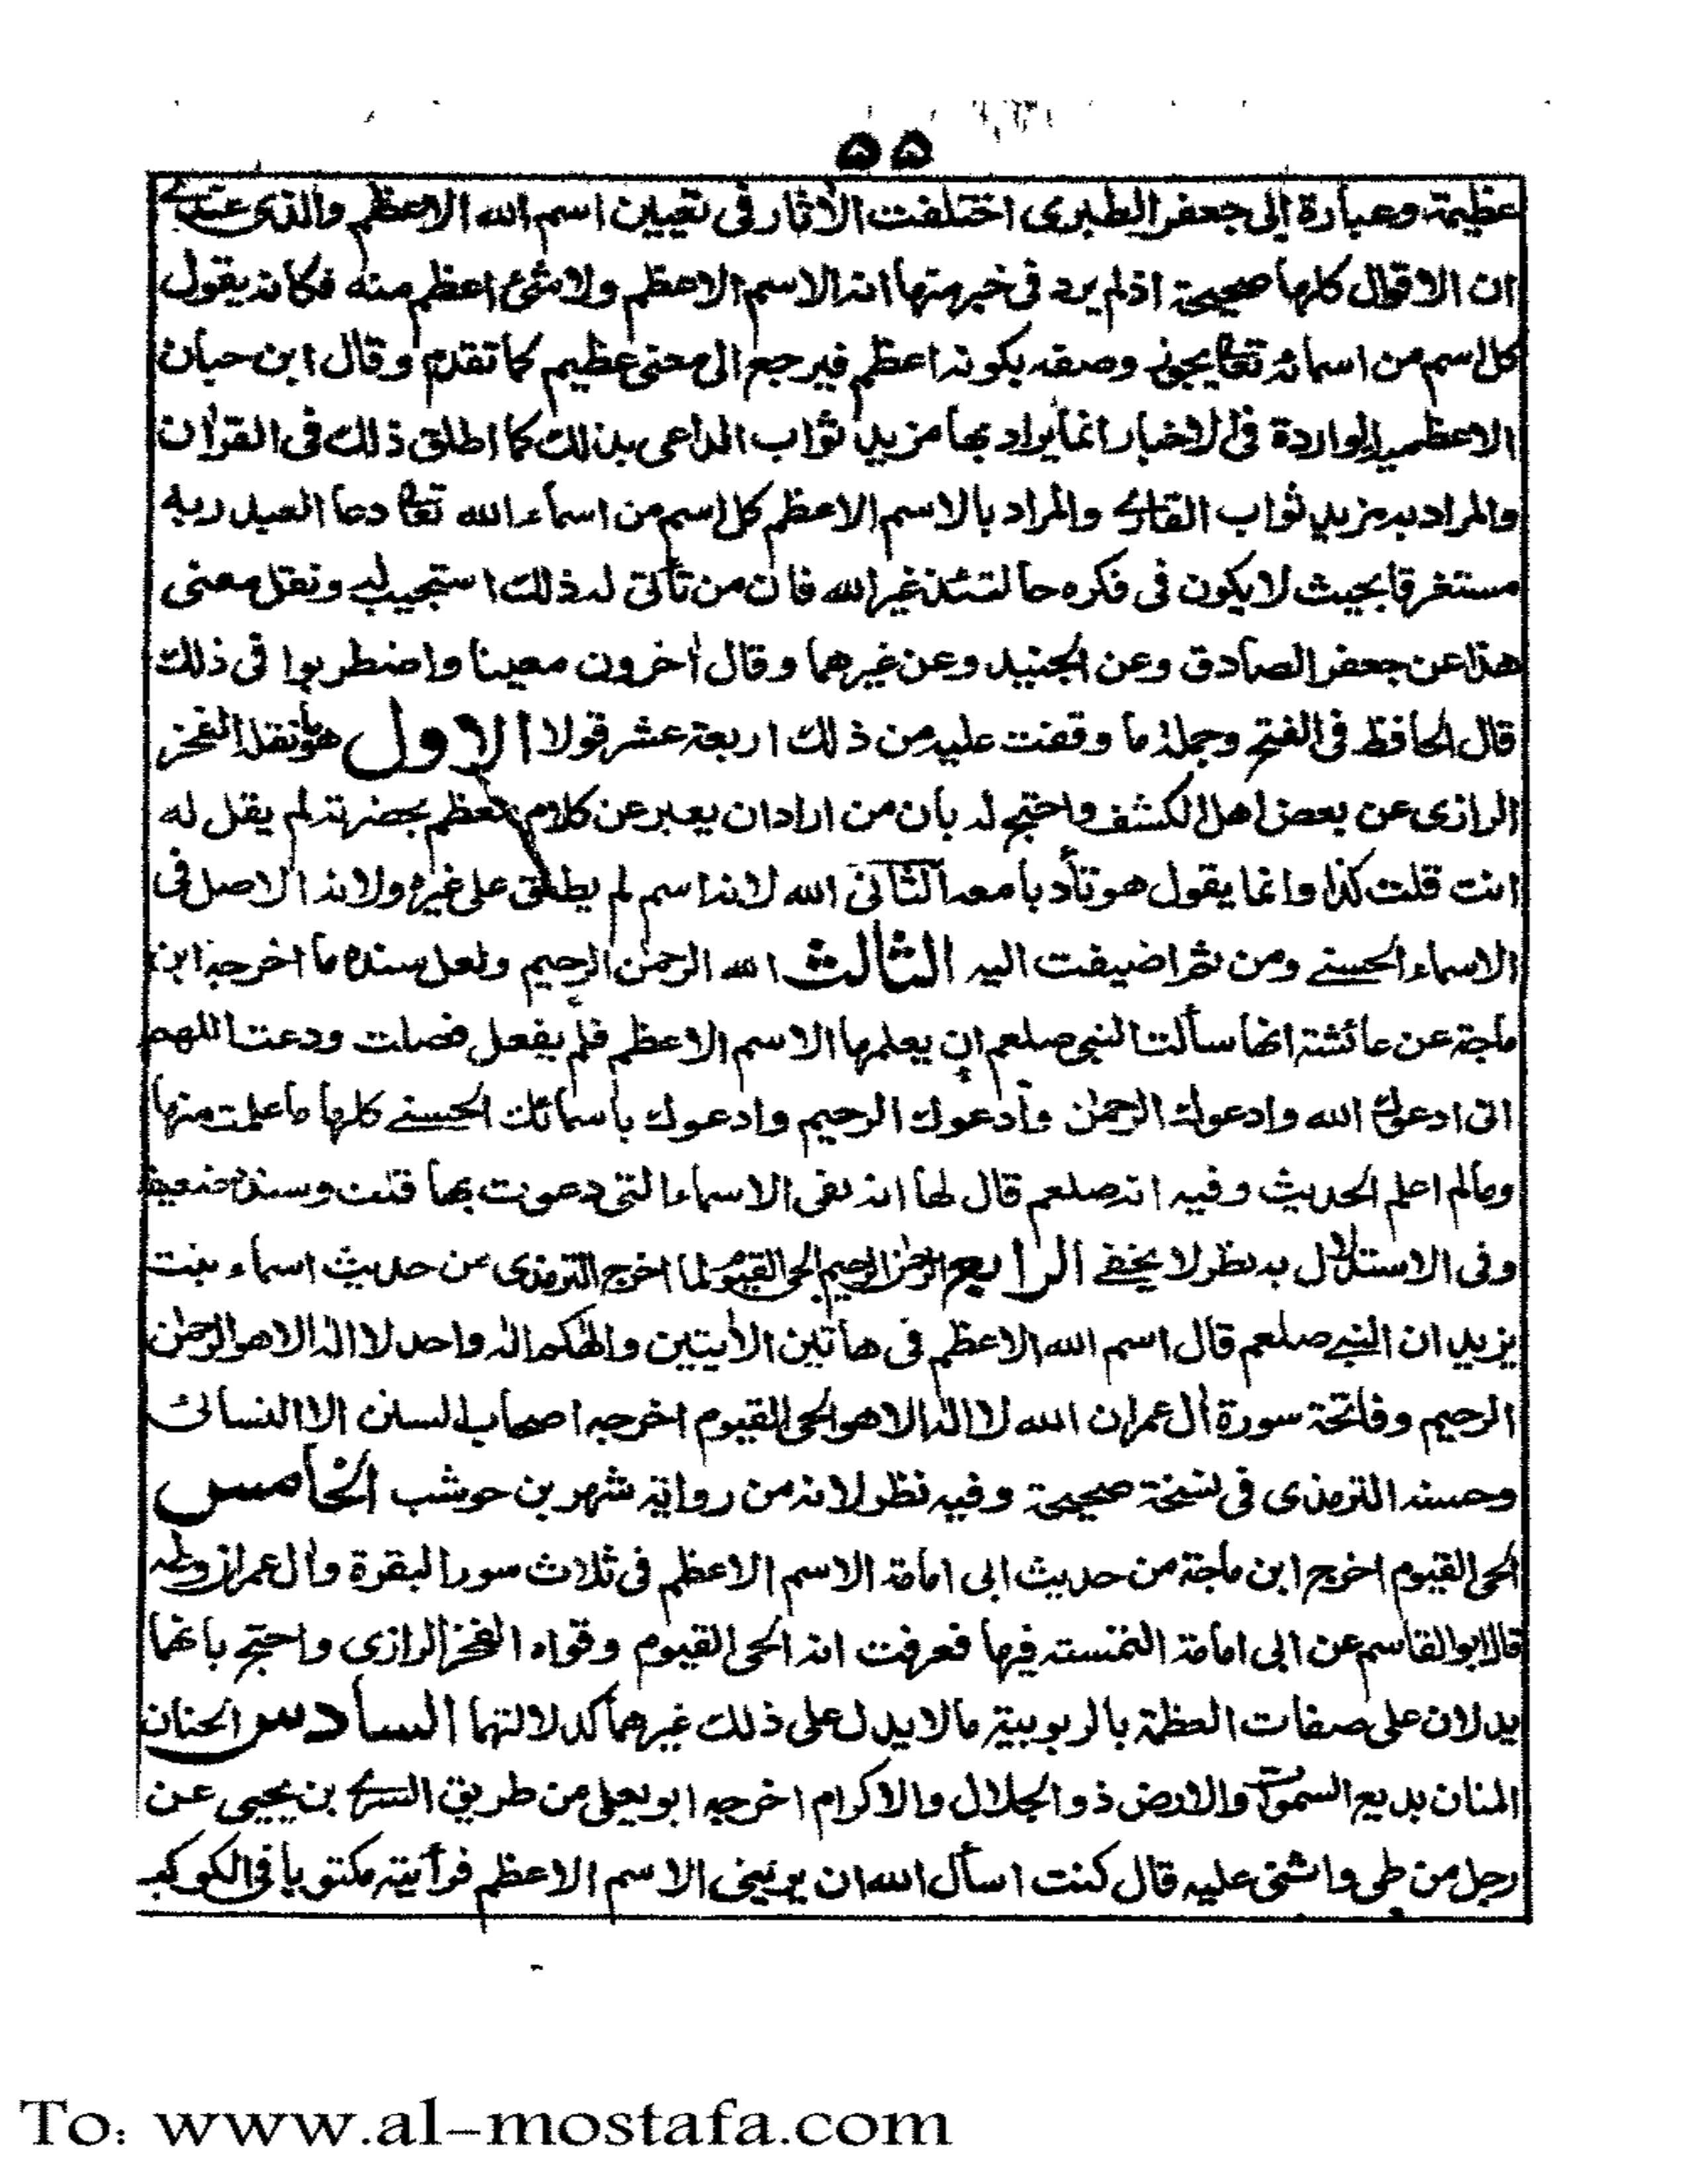 ۵۵
عظيمة وعبارة ابى جعفر الطبرى اختلفت الآثار فى تعيين اسم الله الاعظم والذى عندى
ان الاقوال كلها صحيحة اذ لم يرد فى خبر منها انه الاسم الاعظم ولا شئ اعظم منه فكانه يقول
كل اسم من اسمائه تعالى يجوز وصفه بكونه اعظم فيرجع الى معنى عظيم كما تقدم وقال ابن حبان
الاعظمية الواردة فى الاخبار انما يراد بها مزيد ثواب الداعى بذلك كما اطلق ذلك فى القرآن
والمراد به مزيد ثواب القارئ والمراد بالاسم الاعظم كل اسم من اسماء الله تعالى دعا العبد ربه
مستغرقا بحيث لا يكون فى فكره حالتئذ غير الله فان من تأتى له ذلك استجيب له ونقل معنى
هذا عن جعفر الصادق وعن الجنيد وعن غيرهما وقال آخرون معينا واضطربوا فى ذلك
قال الحافظ فى الفتح وجملة ما وقفت عليه من ذلك اربعة عشر قولا الاول هو نقله الفخر
الرازى عن بعض اهل الكشف واحتج له بان من اراد ان يعبر عن كلام معظم بحضرته لم يقل له
انت قلت كذا وانما يقول هو تأدبا معه الثانى الله لانه اسم لم يطلق على غيره ولانه الاصل فى
الاسماء الحسنى ومن ثم اضيفت اليه الثالث الله الرحمن الرحيم ولعل سنده ما اخرجه ابن
ماجة عن عائشة انها سألت النبى صلعم ان يعلمها الاسم الاعظم فلم يفعل فصلت ودعت اللهم
انى ادعوك الله وادعوك الرحمن وأدعوك الرحيم وادعوك باسمائك الحسنى كلها ما علمت منها
ومالم اعلم الحديث وفيه انه صلعم قال لها انه لفى الاسماء التى دعوت بها قلت وسنده ضعيف
وفى الاستدلال به نظر لا يخفى الرابع الرحمن الرحيم الحى القيوم لما اخرج الترمذى من حديث اسماء بنت
يزيد ان النبى صلعم قال اسم الله الاعظم فى هاتين الآيتين والهكم اله واحد لا اله الا هو الرحمن
الرحيم وفاتحة سورة آل عمران الله لا اله الا هو الحى القيوم اخرجه اصحاب السنن الا النسائى
وحسنه الترمذى فى نسخة صحيحة وفيه نظر لانه من رواية شهر بن حوشب الخامس
الحى القيوم اخرج ابن ماجة من حديث ابى امامة الاسم الاعظم فى ثلاث سور البقرة وآل عمران وطه
قال ابو القاسم عن ابى امامة التمسته فيها فعرفت انه الحى القيوم وقواه الفخر الرازى واحتج بانهما
يدلان على صفات العظمة بالربوبية مالا يدل على ذلك غيرهما كدلالتهما السادس الحنان
المنان بديع السموات والارض ذو الجلال والاكرام اخرجه ابو يعلى من طريق السرى بن يحيى عن
رجل من طى واثنى عليه قال كنت اسأل الله ان يرينى الاسم الاعظم فرأيته مكتوبا فى الكوكب
To: www.al-mostafa.com